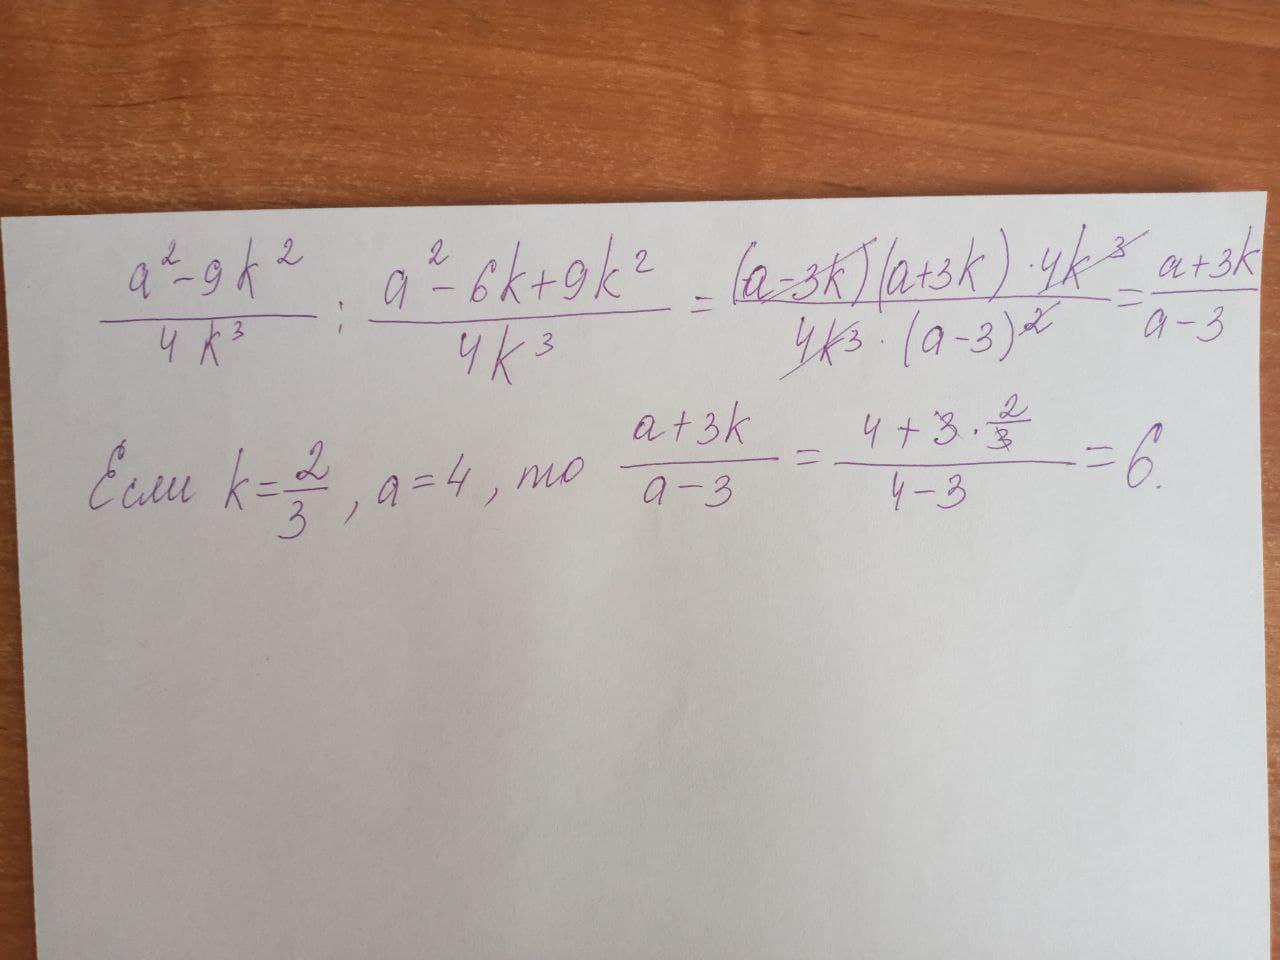 (a² - 9k²)/(4k³) : (a² - 6k + 9k²)/(4k³) = ((a - 3k)(a + 3k) · 4k³)/(4k³ · (a - 3)²) = (a + 3k)/(a - 3)
Если k = 2/3, a = 4, то (a + 3k)/(a - 3) = (4 + 3 · 2/3)/(4 - 3) = 6.